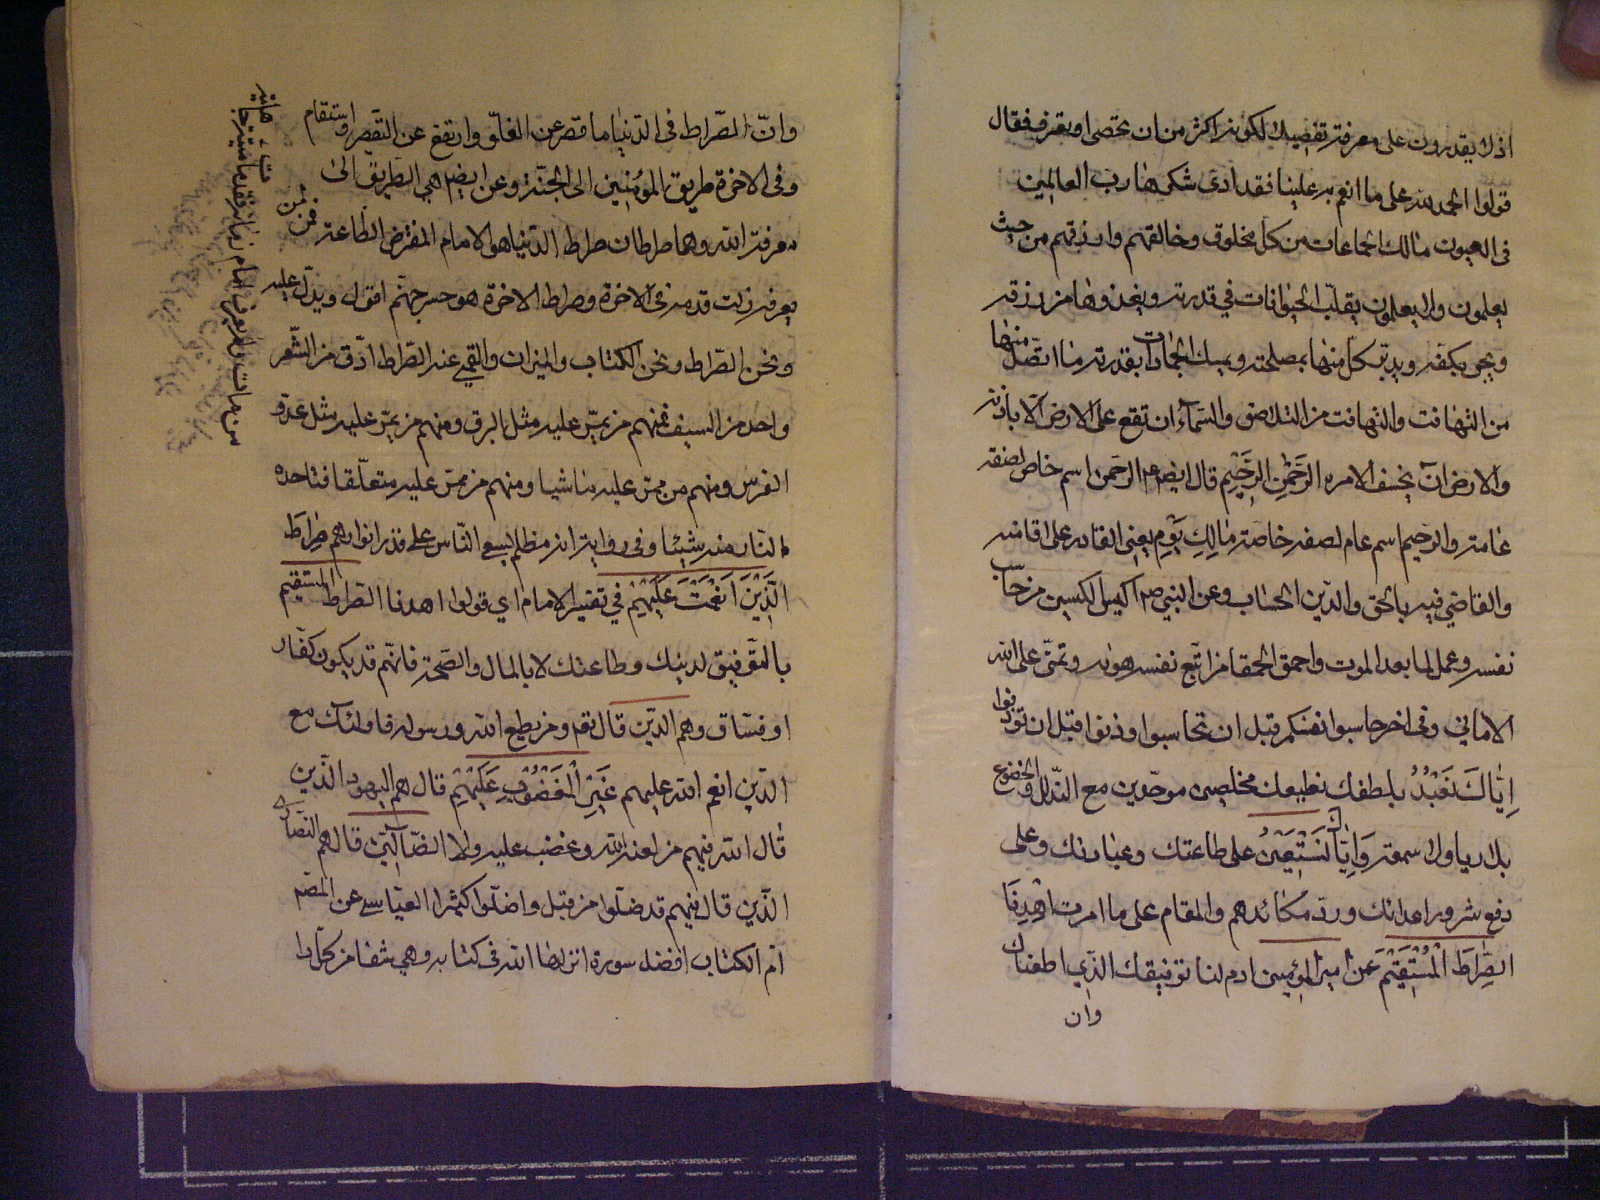 اذ لا يقدرون على معرفة تفصيله لكونه اكثر من ان يحصى او يعرف فقال
قولوا الحمد لله على ما انعم به علينا فقد ادى شكرها رب العالمين
في العيون مالك الجماعات من كل مخلوق وخالقهم ورازقهم من حيث
يعلمون ولا يعلمون يقلب الحيوانات في قدرته ويغذوها من رزقه
ويحو بكنفه ويدبر كلا منها بمصلحته ويمسك الجمادات بقدرته ما اتصل منها
من التهافت والتهافت من التلاصق والسماء ان تقع على الارض الا باذنه
والارض ان تخسف الا بامره الرَحْمٰنِ الرَحٖيمِ قال ايضا الرحمن اسم خاص لصفة
عامة والرحيم اسم عام لصفة خاصة مٰالِكِ يَوْمِ يعني القادر على اقامته
والقاضي فيه بالحق والدين الحساب وعن النبي ص اكيس الكيسين من حاسب
نفسه وعمل لما بعد الموت واحمق الحمقا من اتبع نفسه هواه وتمنى على الله
الاماني وفي اخر حاسبوا انفسكم قبل ان تحاسبوا وزنوا قبل ان توزنوا
اِيّٰاكَ نَعْبُدُ بلطفك نطيعك مخلصين موحدين مع التذلل والخضوع
بلا رياء ولا سمعة وَاِيّٰاكَ نَسْتَعِيْنُ على طاعتك وعبادتك وعلى
دفع شرور اعدائك ورد مكائدهم والمقام على ما امرت اِهْدِنَا
الصِّرٰاطَ الْمُسْتَقِيْمَ عن امير المؤمنين ادم لنا توفيقك الذي اطعناك
وان
وانّ الصّراط في الدّنيا ما قصر عن الغلوّ وارتفع عن التقصير واستقام
وفي الاخرة طريق المؤمنين الى الجنّة وعن ايضا هي الطّريق الى
معرفة الله وهما صراطان صراط الدّنيا هو الامام المفترض الطّاعة فمن
يعرفه زلت قدمه في الاخرة وصراط الاخرة هو جسر جهنّم اقول ويدلّ عليه
ونحن الصّراط ونحن الكتاب والميزان والقمي عنه الصّراط ادّق من الشّعر
واحد من السيف فمنهم من يمرّ عليه مثل البرق ومنهم من يمرّ عليه مثل عدو
الفرس ومنهم من يمرّ عليه ماشيا ومنهم من يمرّ عليه متعلّقا فتاخذه
النّار منه شيئا وفي رواية انه مظلم يسعى النّاس على قدر انوارهم صِرٰاطَ
الَّذِيْنَ اَنْعَمْتَ عَلَيْهِمْ في تفسير الامام اي قولوا اهدنا الصّراط المستقيم
بالتّوفيق لدينك وطاعتك لا بالمال والصّحة فانّهم قد يكون كفّارا
او فسّاق وهم الذّين قال تع ومن يطع الله ورسوله فاولئك مع
الذّين انعم الله عليهم غَيْرِ الْمَغْضُوْبِ عَلَيْهِمْ قال هم اليهود الّذين
قال الله فيهم من لعنه الله وغضب عليه ولا الضّآلّين قال هم النّصارى
الّذين قال فيهم قد ضلّوا من قبل واضلّوا كثيرا العيّاشي عن
امّ الكتاب افضل سورة انزلها الله في كتابه وهي شفاء من كلّ داء
من مات ولم يعرف امام زمانه فقد مات ميتة جاهلية